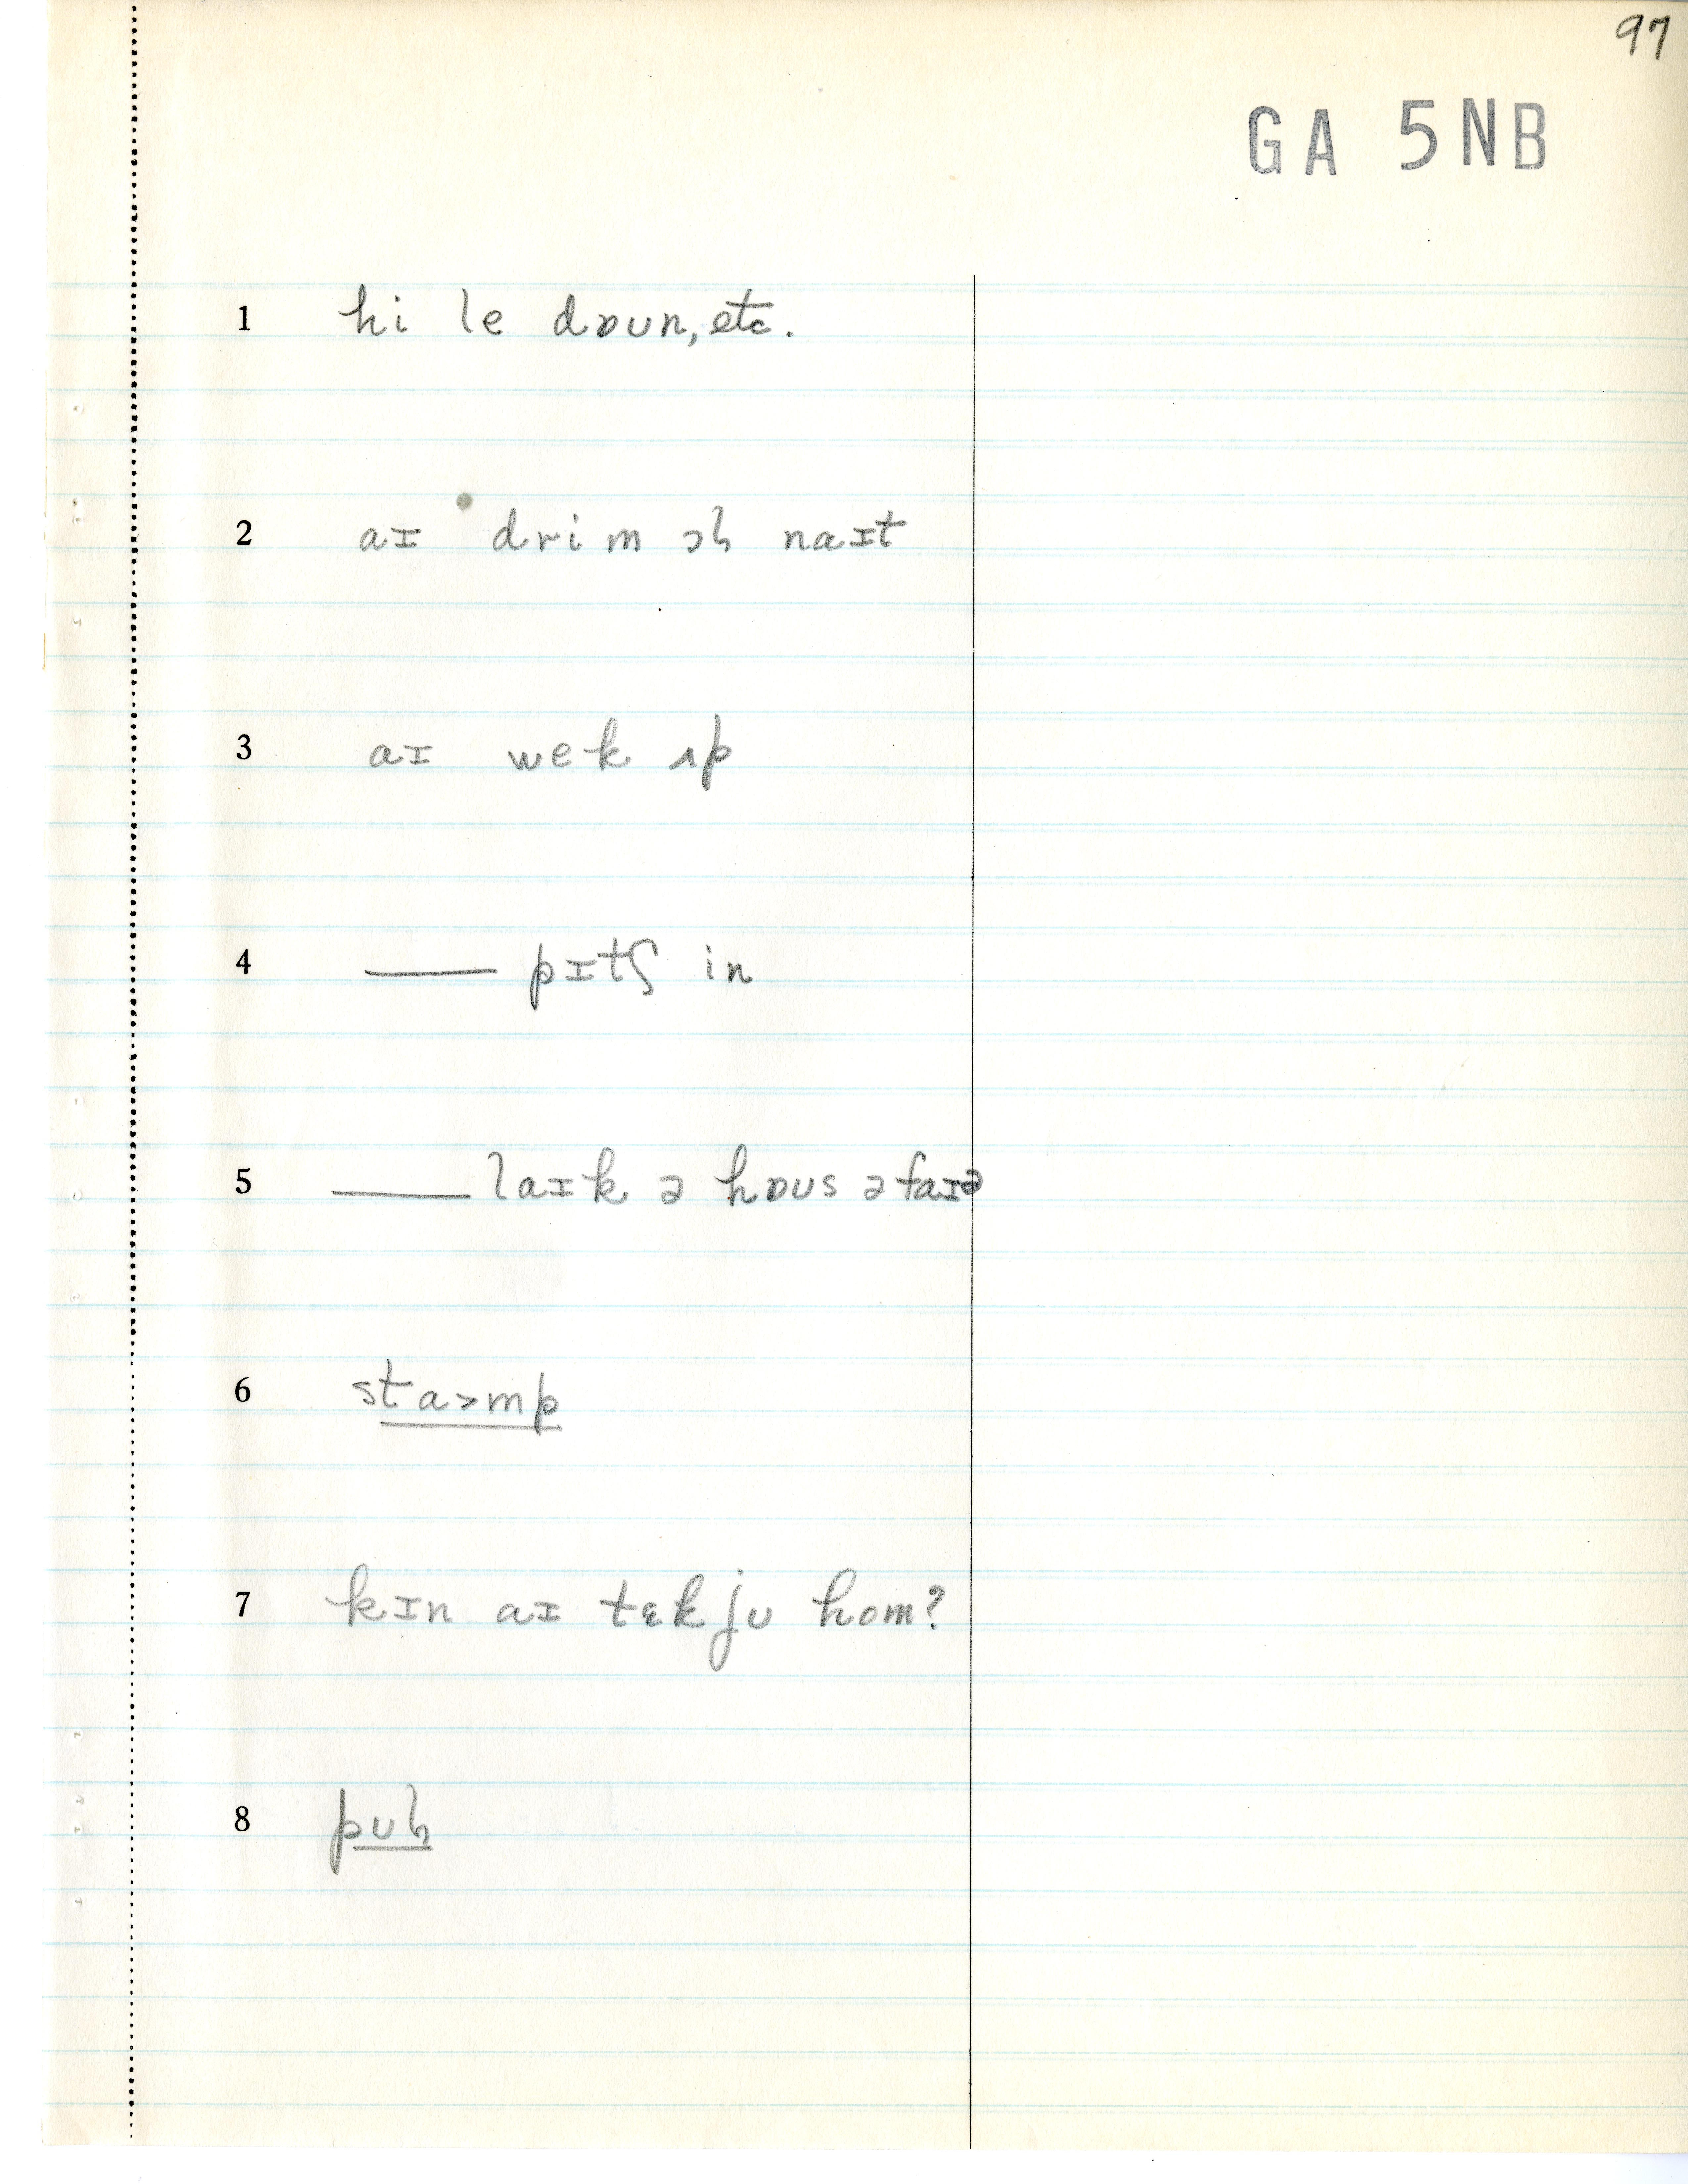 97
GA 5NB
1 hi le dɒun, etc.
2 aɪ drim ɔɫ naɪt
3 aɪ wek ʌp
4 —— pɪtʃ in
5 —— laɪk ə hɒus əfaɪə
6 sta>mp
7 kɪn aɪ tɛk ju hom?
8 puɫ